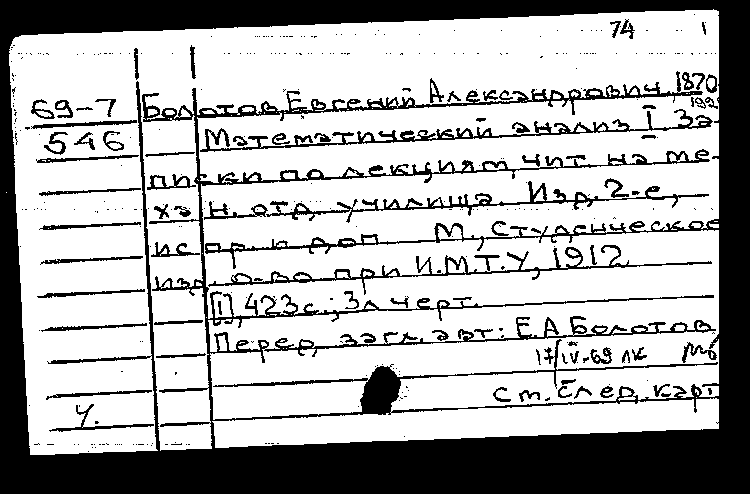 74 1
69-7 Болотов, Евгений Александрович, 1870
546 Математический анализ I. За-
писки по лекциям, чит. на ме-
ха н. отд. училища. Изд. 2-е,
испр. и доп. М., Студенческое
изд. о-во при И.М.Т.У, 1912
[I], 423с.; 3л черт.
Перед загл. авт: Е.А Болотов
17/IV-69 лк
Ч. См. след. карт